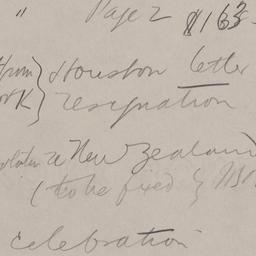 " Page 2 $163
Houston letter
resignation
re New Zealand
(to be fixed by
celebration